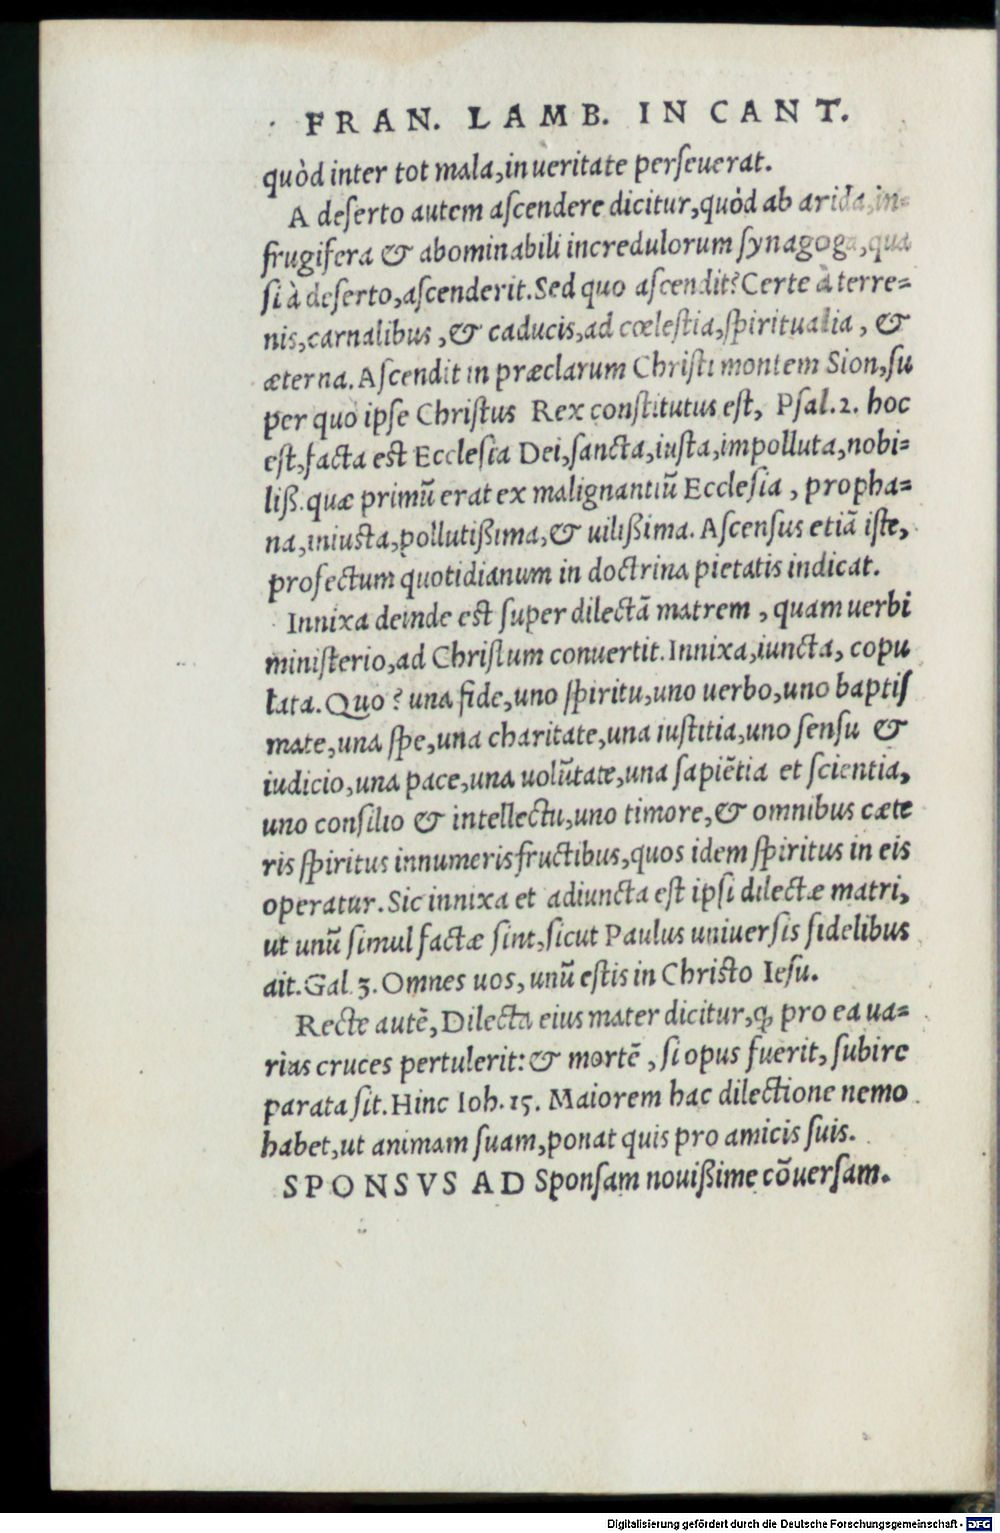 FRAN. LAMB. IN CANT.
quòd inter tot mala, in ueritate perſeuerat.
A deſerto autem aſcendere dicitur, quòd ab arida, in-
frugifera & abominabili incredulorum ſynagoga, qua
ſi à deſerto, aſcenderit. Sed quo aſcendit? Certe à terre-
nis, carnalibus, & caducis, ad cœleſtia, ſpiritualia, &
æterna. Aſcendit in præclarum Chriſti montem Sion, ſu
per quò ipſe Chriſtus Rex conſtitutus eſt, Pſal. 2. hoc
eſt, facta est Eccleſia Dei, ſancta, iuſta, impolluta, nobi-
liß. quæ primũ erat ex malignantiũ Eccleſia, propha-
na, iniusta, pollutißima, & uilißima. Aſcenſus etiã iſte,
profectum quotidianum in doctrina pietatis indicat.
Innixa deinde est ſuper dilectã matrem, quam uerbi
miniſterio, ad Chriſtum conuertit. Innixa, iuncta, copu
lata. Quo? una fide, uno ſpiritu, uno uerbo, uno baptiſ
mate, una ſpe, una charitate, una iuſtitia, uno ſenſu &
iudicio, una pace, una uolũtate, una ſapiẽtia et ſcientia,
uno conſilio & intellectu, uno timore, & omnibus cæte
ris ſpiritus innumeris fructibus, quos idem ſpiritus in eis
operatur. Sic innixa et adiuncta eſt ipſi dilectæ matri,
ut unũ ſimul factæ ſint, ſicut Paulus uniuerſis fidelibus
ait. Gal. 3. Omnes uos, unũ eſtis in Chriſto Ieſu.
Recte autẽ, Dilecta eius mater dicitur, ꝙ pro ea ua-
rias cruces pertulerit: & mortẽ, ſi opus fuerit, ſubire
parata ſit. Hinc Ioh. 15. Maiorem hac dilectione nemo
habet, ut animam ſuam, ponat quis pro amicis ſuis.
SPONSVS AD Sponſam nouißime cõuerſam.
Digitalisierung gefördert durch die Deutsche Forschungsgemeinschaft - DFG